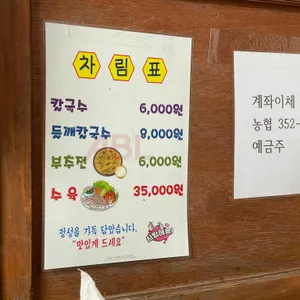 차림표
칼국수 6,000원
들깨칼국수 9,000원
부추전 6,000원
수육 35,000원
정성을 가득 담았습니다.
"맛있게 드세요"
계좌이체
농협 352-
예금주